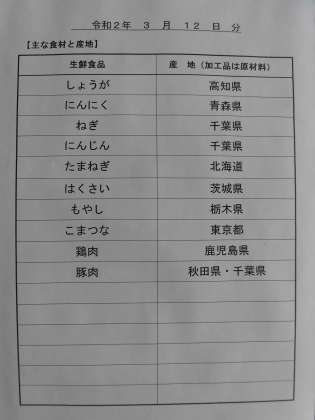 令和2年 3 月 12 日 分
【主な食材と産地】
生鮮食品 産 地（加工品は原材料）
しょうが 高知県
にんにく 青森県
ねぎ 千葉県
にんじん 千葉県
たまねぎ 北海道
はくさい 茨城県
もやし 栃木県
こまつな 東京都
鶏肉 鹿児島県
豚肉 秋田県・千葉県